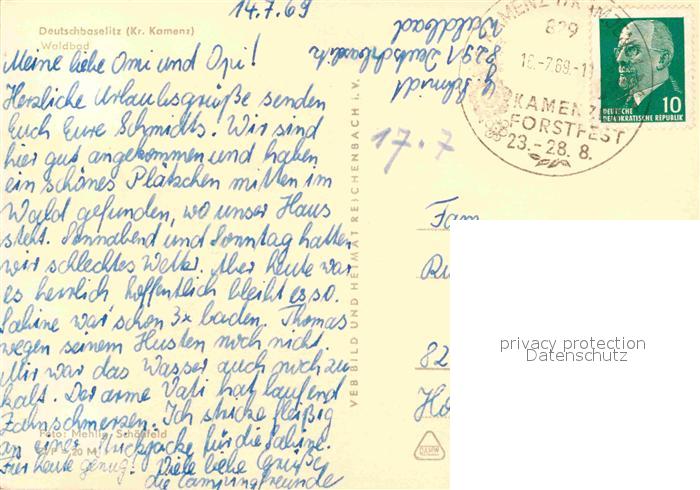 14.7.69
Deutschbaselitz (Kr. Kamenz)
Waldbad
Meine liebe Omi und Opi!
Herzliche Urlaubsgrüße senden
Euch Eure Schmidts. Wir sind
hier gut angekommen und haben
ein schönes Plätzchen mitten im
Wald gefunden, wo unser Haus
steht. Sonnabend und Sonntag hatten
wir schlechtes Wetter. Aber heute war
es herrlich, hoffentlich bleibt es so.
Sabine war schon 3x baden. Thomas
wegen seinem Husten noch nicht.
Mir war das Wasser auch noch zu
kalt. Der arme Vati hat laufend
Zahnschmerzen. Ich stricke fleißig
an einer Strickjacke für die Sabine.
Für heute genug. Viele liebe Grüße
die Campingfreunde
Foto: Mehlig, Schönfeld
EVP = 20 M
Schmidt
8291 Deutschbaselitz
Waldbad
VEB BILD UND HEIMAT REICHENBACH I. V.
17.7
829
16.-7.69.-11
KAMENZ
FORSTFEST
23.-28. 8.
DEUTSCHE
DEMOKRATISCHE REPUBLIK
10
Fam
82
DAHW
privacy protection
Datenschutz